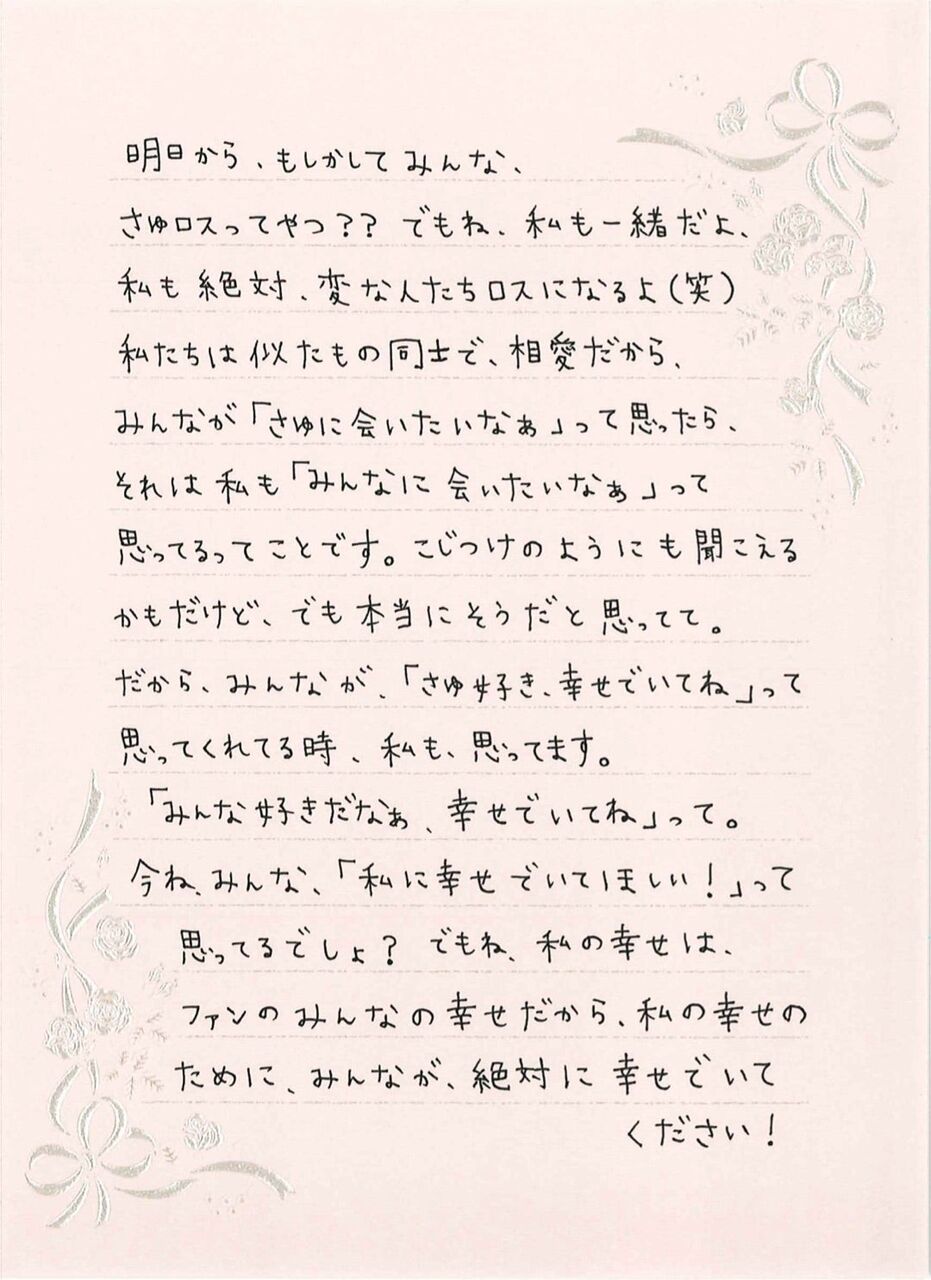 明日から、もしかしてみんな、
さゆロスってやつ？？でもね、私も一緒だよ、
私も絶対、変な人たちロスになるよ(笑)
私たちは似たもの同士で、相愛だから、
みんなが「さゆに会いたいなぁ」って思ったら、
それは私も「みんなに会いたいなぁ」って
思ってるってことです。こじつけのようにも聞こえる
かもだけど、でも本当にそうだと思ってて。
だから、みんなが、「さゆ好き、幸せでいてね」って
思ってくれてる時、私も、思ってます。
「みんな好きだなぁ、幸せでいてね」って。
今ね、みんな、「私に幸せでいてほしい！」って
思ってるでしょ？でもね、私の幸せは、
ファンのみんなの幸せだから、私の幸せの
ために、みんなが、絶対に幸せでいて
ください！